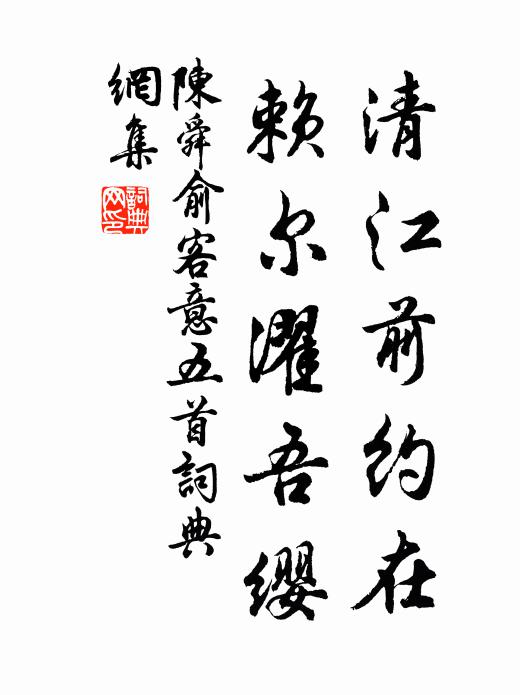 清江前约在
赖尔濯吾缨
陳舜俞客意五首詞典
網集
詞典网印